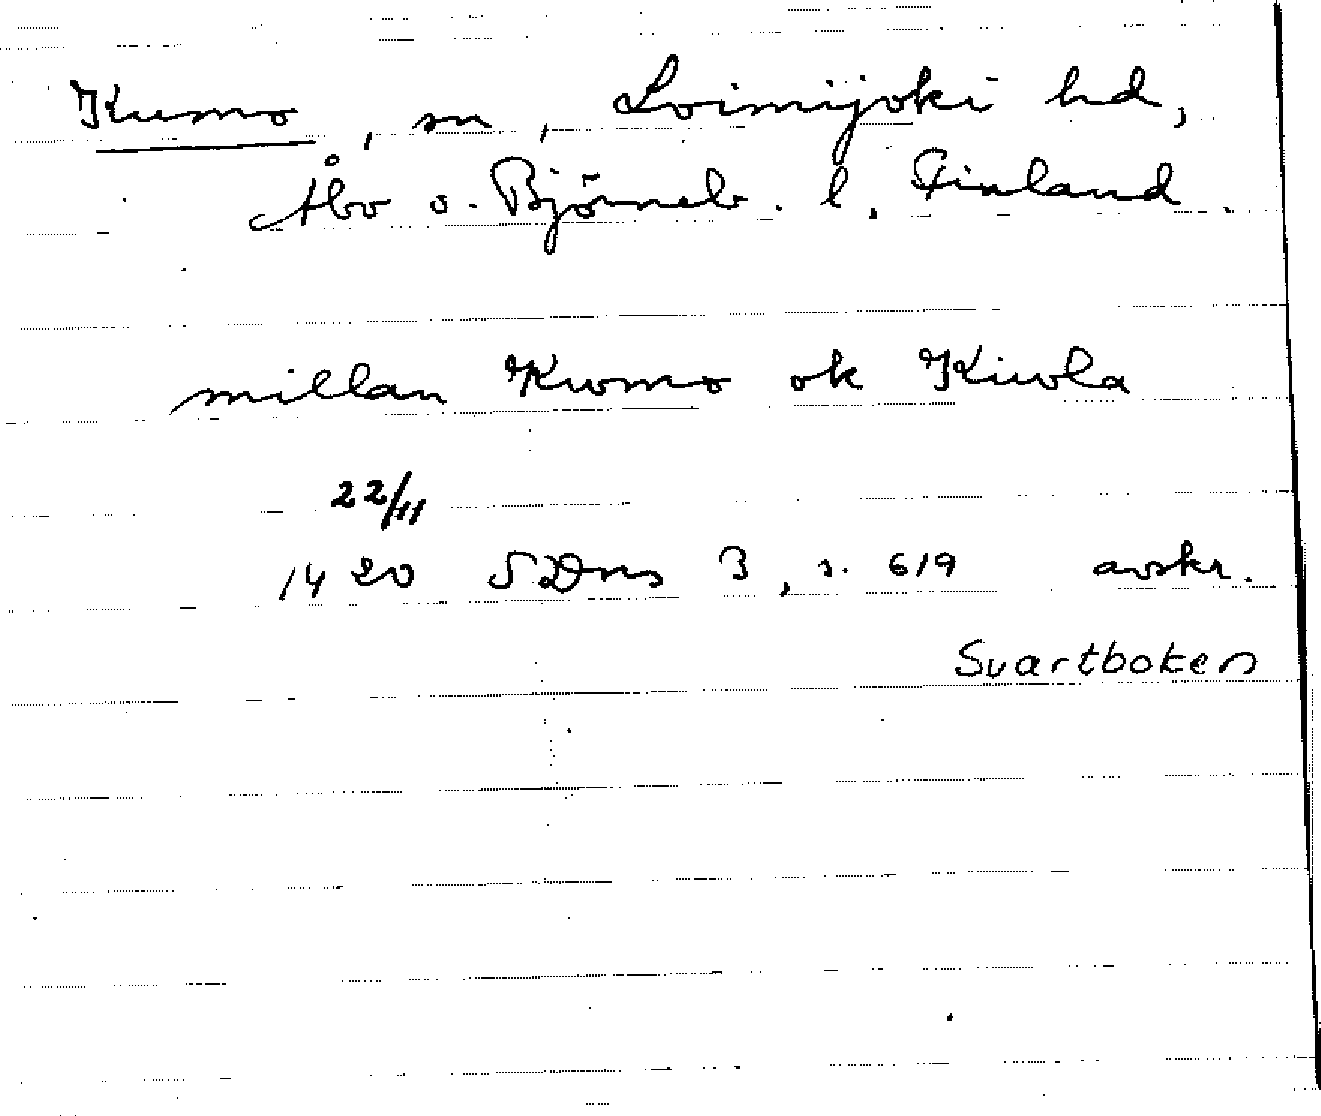 Kumo, sn, Loimijoki hd,
Åbo o. Björneb. l. Finland.
millan Kwmo ok Kiwla
22/11
1420 SDns 3, s. 619 avskr.
Svartboken